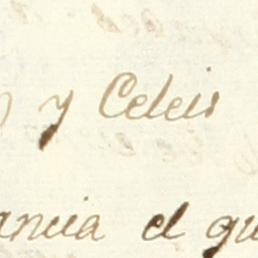 y Celeis
ancia el qu